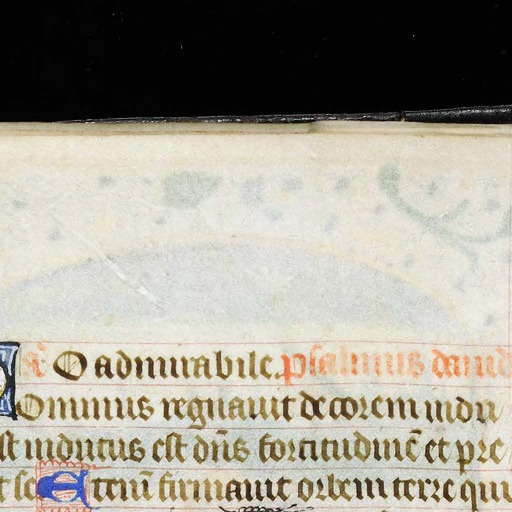 O admirabile. psalmus david
Ominus regnauit decorem indu
st indutus est dñs fortitudinē et pre
t se Etenī firmauit orbem terre qui